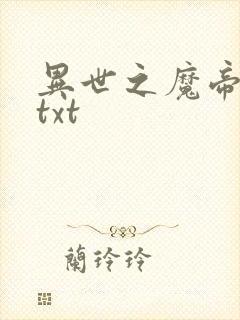 異世之魔帝
txt
蘭玲玲